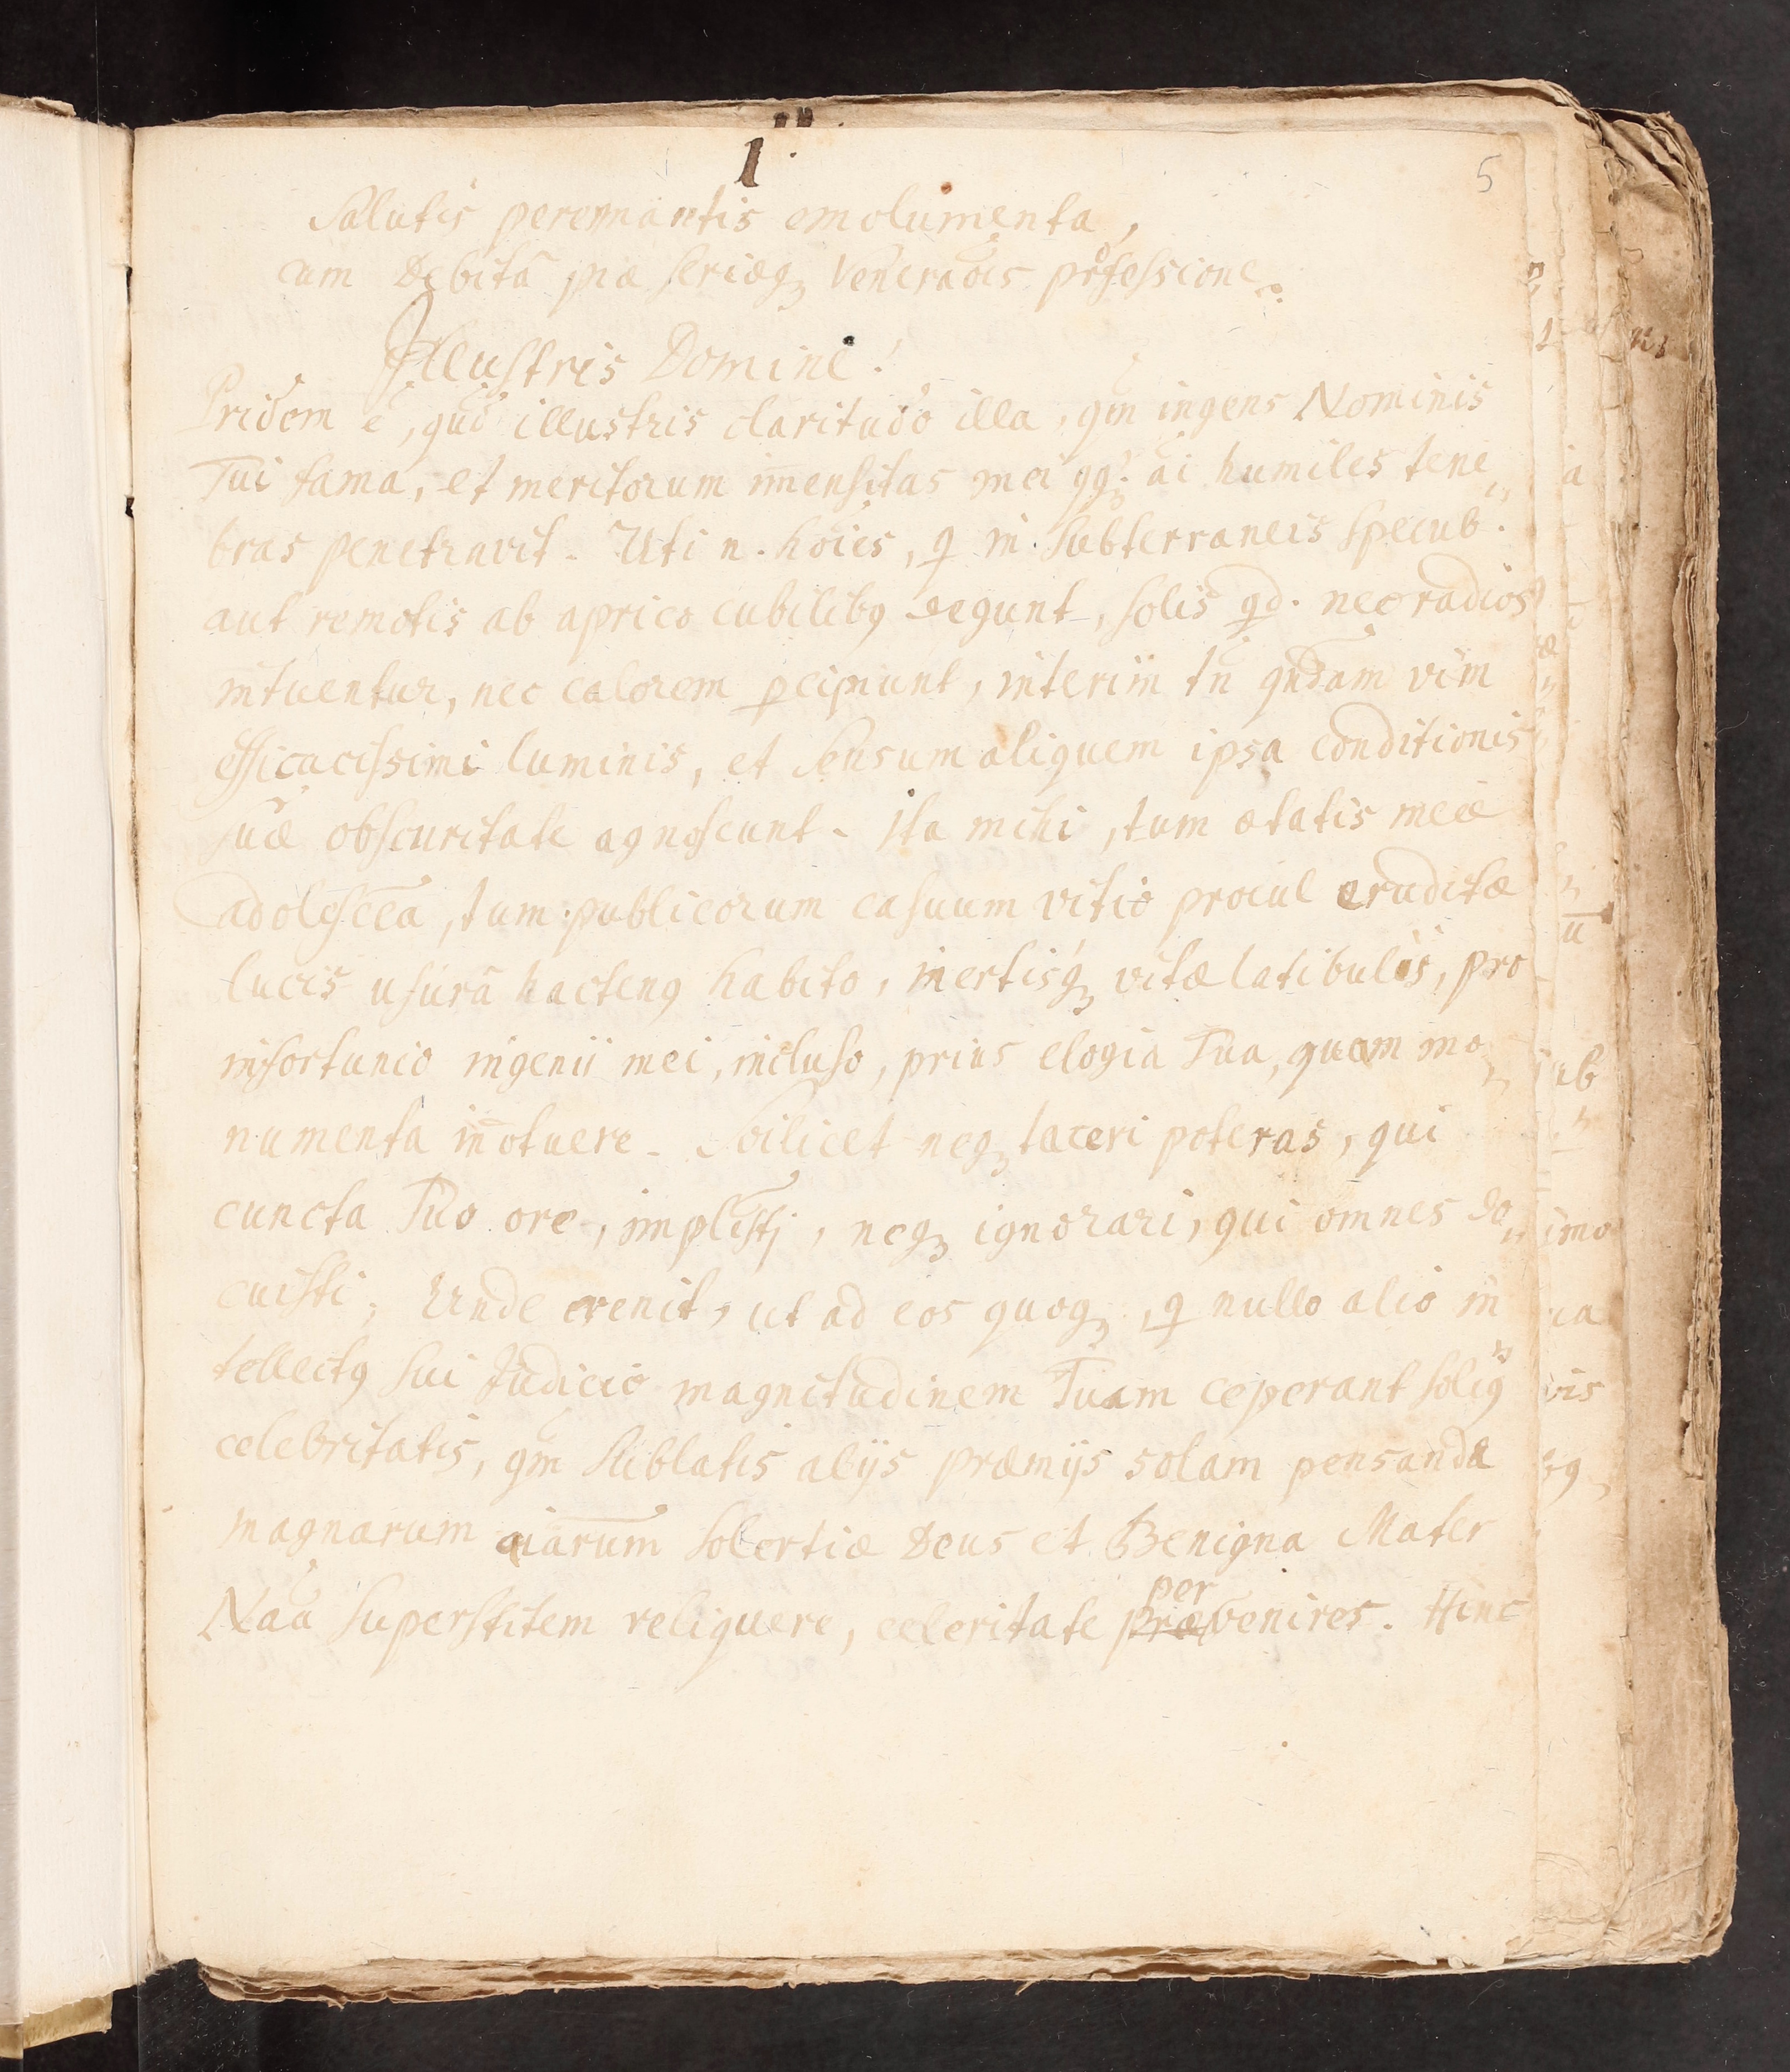 1.
5
Salutis perennantis emolumenta,
cum Debitâ piæ seriæq; Venerãõis põfessione.
Illustris Domine!
Pridem ẽ, quod illustris claritudo illa, qm̃ ingens Nominis
Tui fama, et meritorum im̅ensitas mei qq; aĩ humiles tene„
bras penetravit. Uti n. hoĩes, q in subterraneis specub:
aut remotis ab aprico cubilibꝰ degunt, solis qd. nec radios
intuentur, nec calorem ꝑcipiunt, interim tñ qndam vim
efficacissimi luminis, et sensum aliquem ipsa conditionis
suæ obscuritate agnoscunt. Ita mihi, tum ætatis meæ
adolesc̃ea, tum publicorum casuum vitio procul eruditæ
lucis usurâ hactenꝰ habito, inertisq; vitæ latibulis, pro
infortunio ingenii mei, incluso, prius elogia Tua, quam mo„
numenta in̅otuere. Scilicet neq; taceri poteras, qui
cuncta Tuo ore, implesti, neq; ignorari, qui omnes do„
cuisti; Unde evenit, ut ad eos quoq;, q nullo alio in„
tellectꝰ sui Judicio magnitudinem Tuam ceperant soliꝰ
celebritatis, qm̃ sublatis alijs præmijs solam pensandæ
magnarum aiarum solertiæ Deus et Benigna Mater
Naã superstitem reliquere, celeritate præ per venires. Hinc